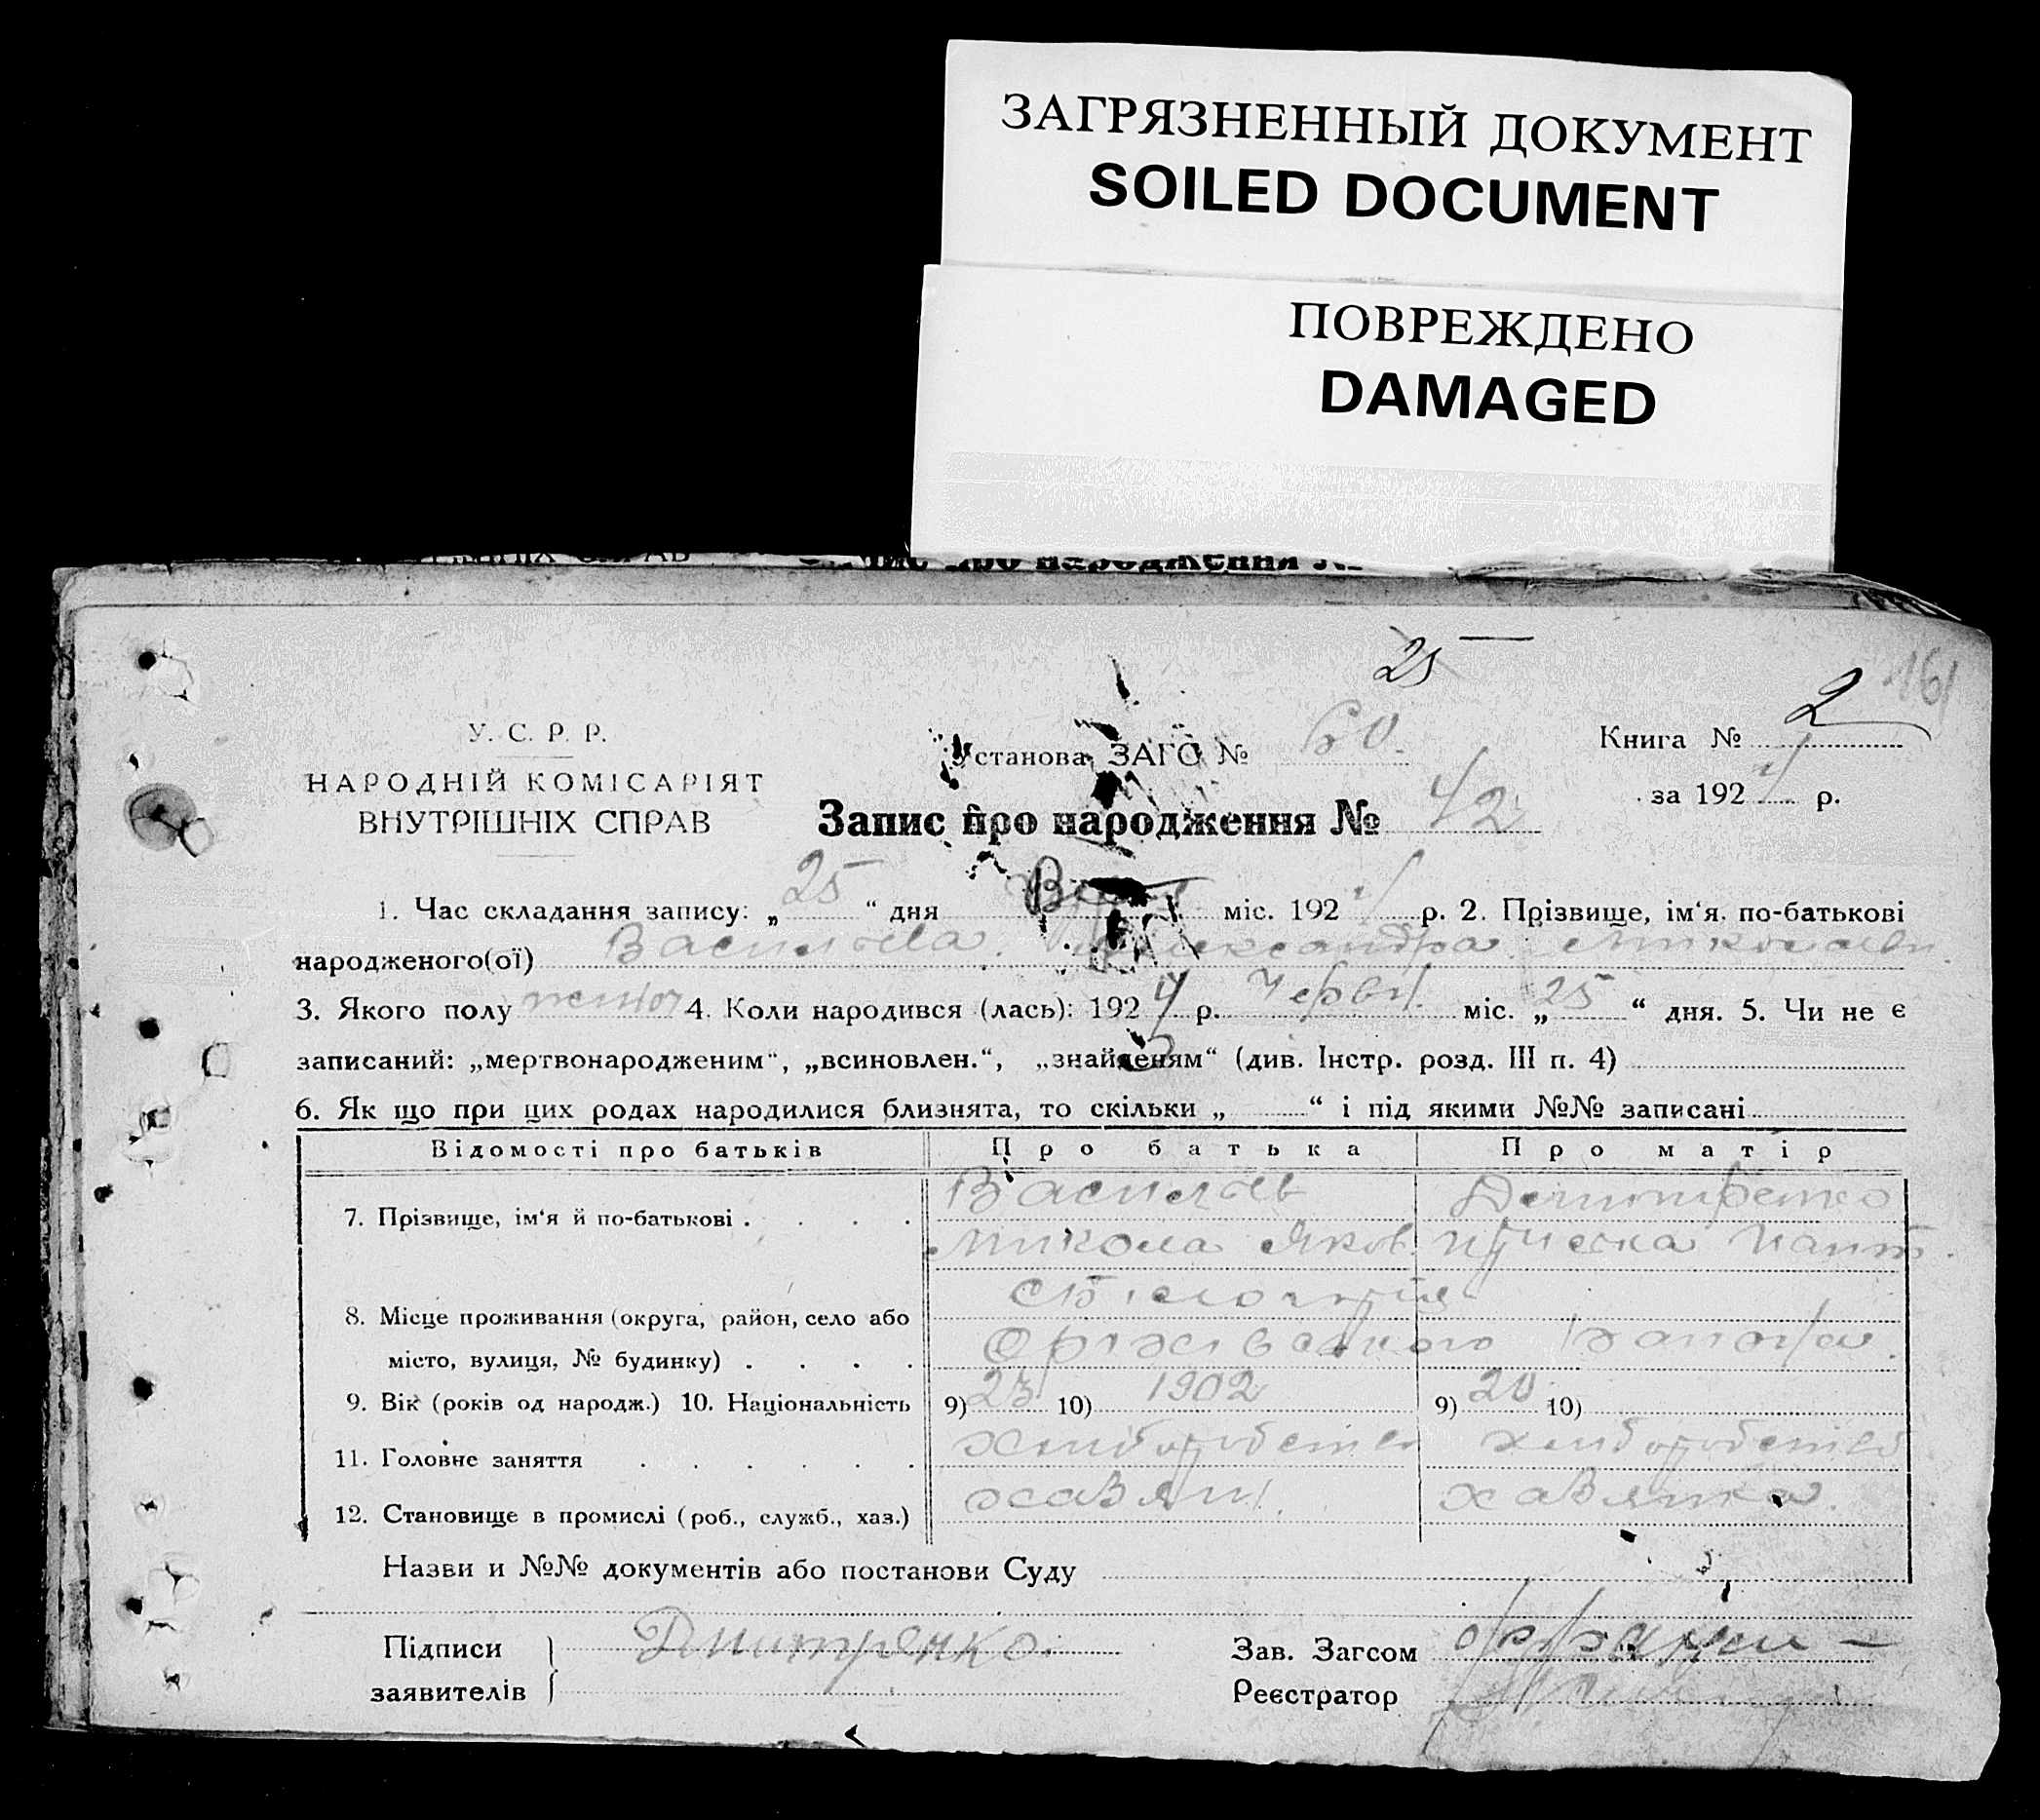 ЗАГРЯЗНЕННЫЙ ДОКУМЕНТ
SOILED DOCUMENT
ПОВРЕЖДЕНО
DAMAGED
25
161
У. С. Р. Р.
НАРОДНІЙ КОМІСАРІЯТ
ВНУТРІШНІХ СПРАВ
Установа ЗАГС № 60
Книга № 2
за 1924 р.
Запис про народження № 42
1. Час складання запису: „25“ дня міс. 1924 р. 2. Прізвище, ім‘я, по-батькові
народженого(ої) Васильєва Александра Миколаевн.
3. Якого полу 4. Коли народився (лась): 1924 р. Червн. міс. „25“ дня. 5. Чи не є
записаний: „мертвонародженим“, „всиновлен.“, „знайденям“ (див. Інстр. розд. III п. 4)
6. Як що при цих родах народилися близнята, то скільки „ “ і під якими №№ записані
Відомості про батьків Про батька Про матір
7. Прізвище, ім‘я й по-батькові Васильєв Дмитренко
Микола Яков.
8. Місце проживання (округа, район, село або
місто, вулиця, № будинку)
9. Вік (років од народж.) 10. Національність 9) 23 10) 1902 9) 20 10)
11. Головне заняття хлиборобство хлиборобство
12. Становище в промислі (роб., служб., хаз.) хазяин. хазяйка.
Назви и №№ документів або постанови Суду
Підписи Дмитренко Зав. Загсом
заявителів Реєстратор